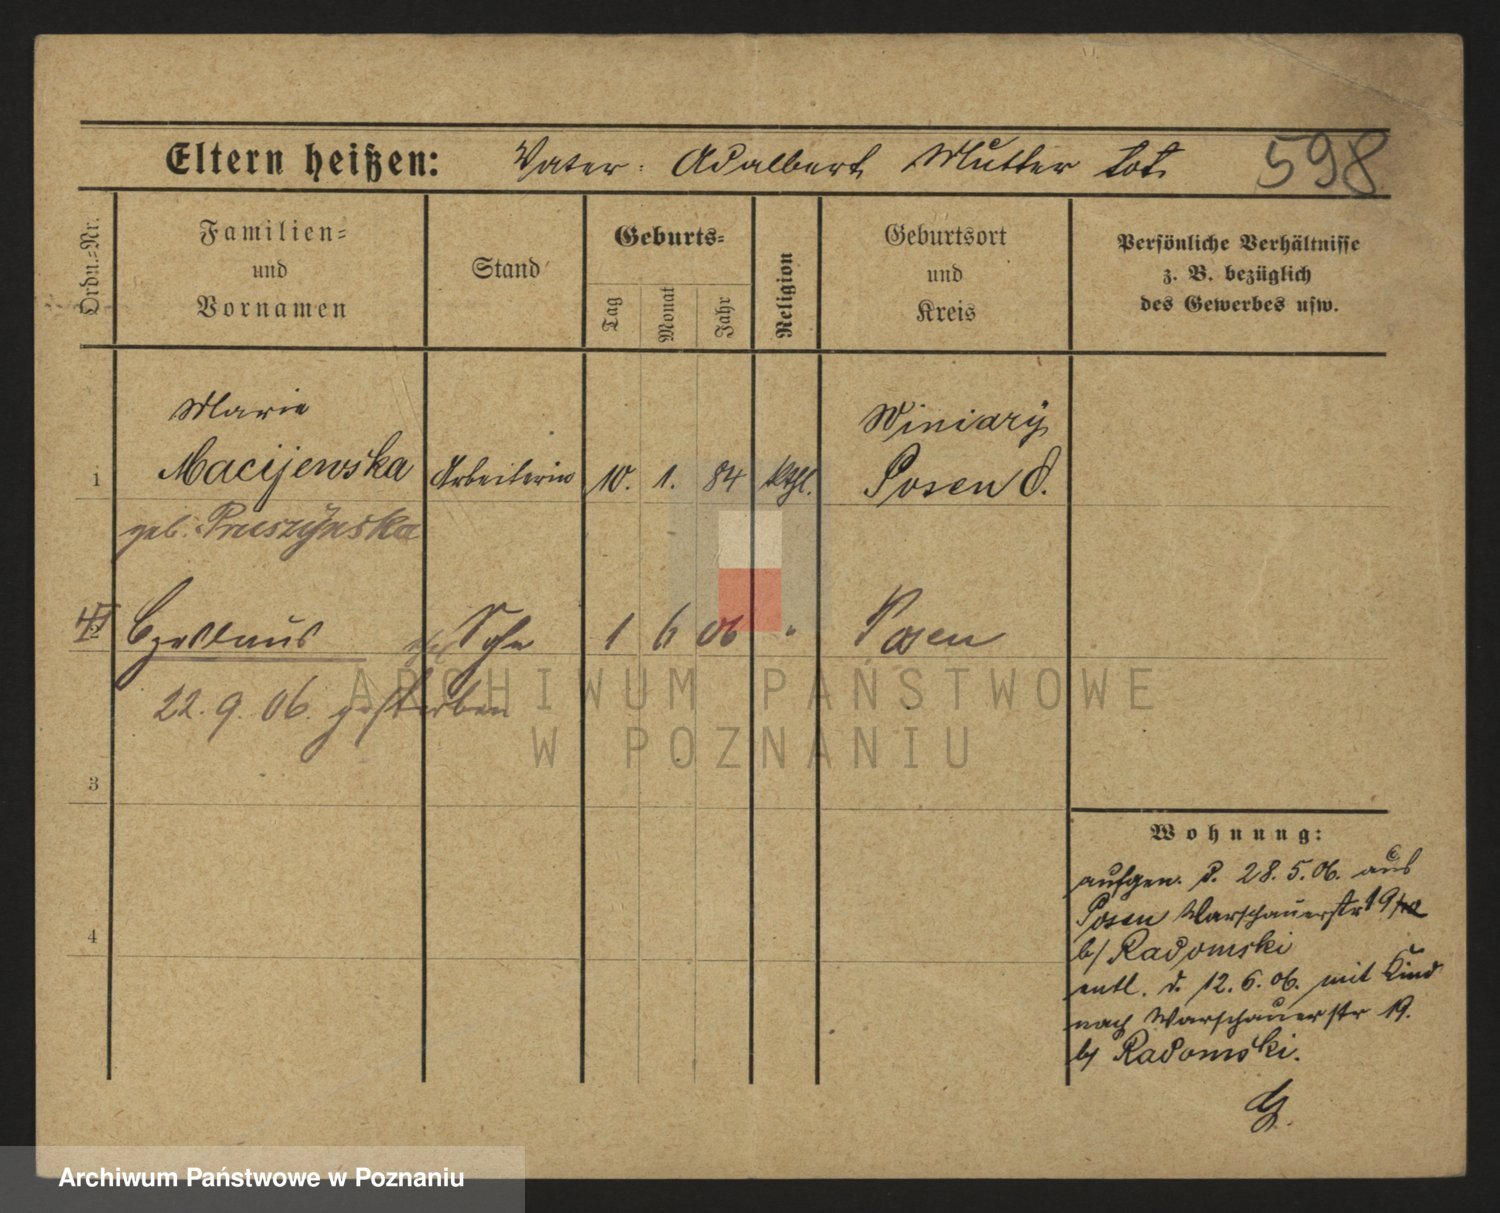 Eltern heißen: Vater: Adalbert Mutter tot. 598
Ordn.-Nr.
Familien-
und
Vornamen
Stand
Geburts-
Tag
Monat
Jahr
Religion
Geburtsort
und
Kreis
Persönliche Verhältnisse
z. B. bezüglich
des Gewerbes usw.
Marie
Winiary
1 Macijewska Arbeiterin 10. 1. 84 kthl. Posen O.
geb. Pruszynska
2 Czeslaus Sohn 1 6 06 " Posen
22. 9. 06. gestorben
ARCHIWUM PAŃSTWOWE
W POZNANIU
3
Wohnung:
aufgen. d. 28. 5. 06. aus
Posen Warschauerstr 19
b/ Radomski
4
entl. d. 12. 6. 06. mit Kind
nach Warschauerstr 19.
b/ Radomski.
Archiwum Państwowe w Poznaniu